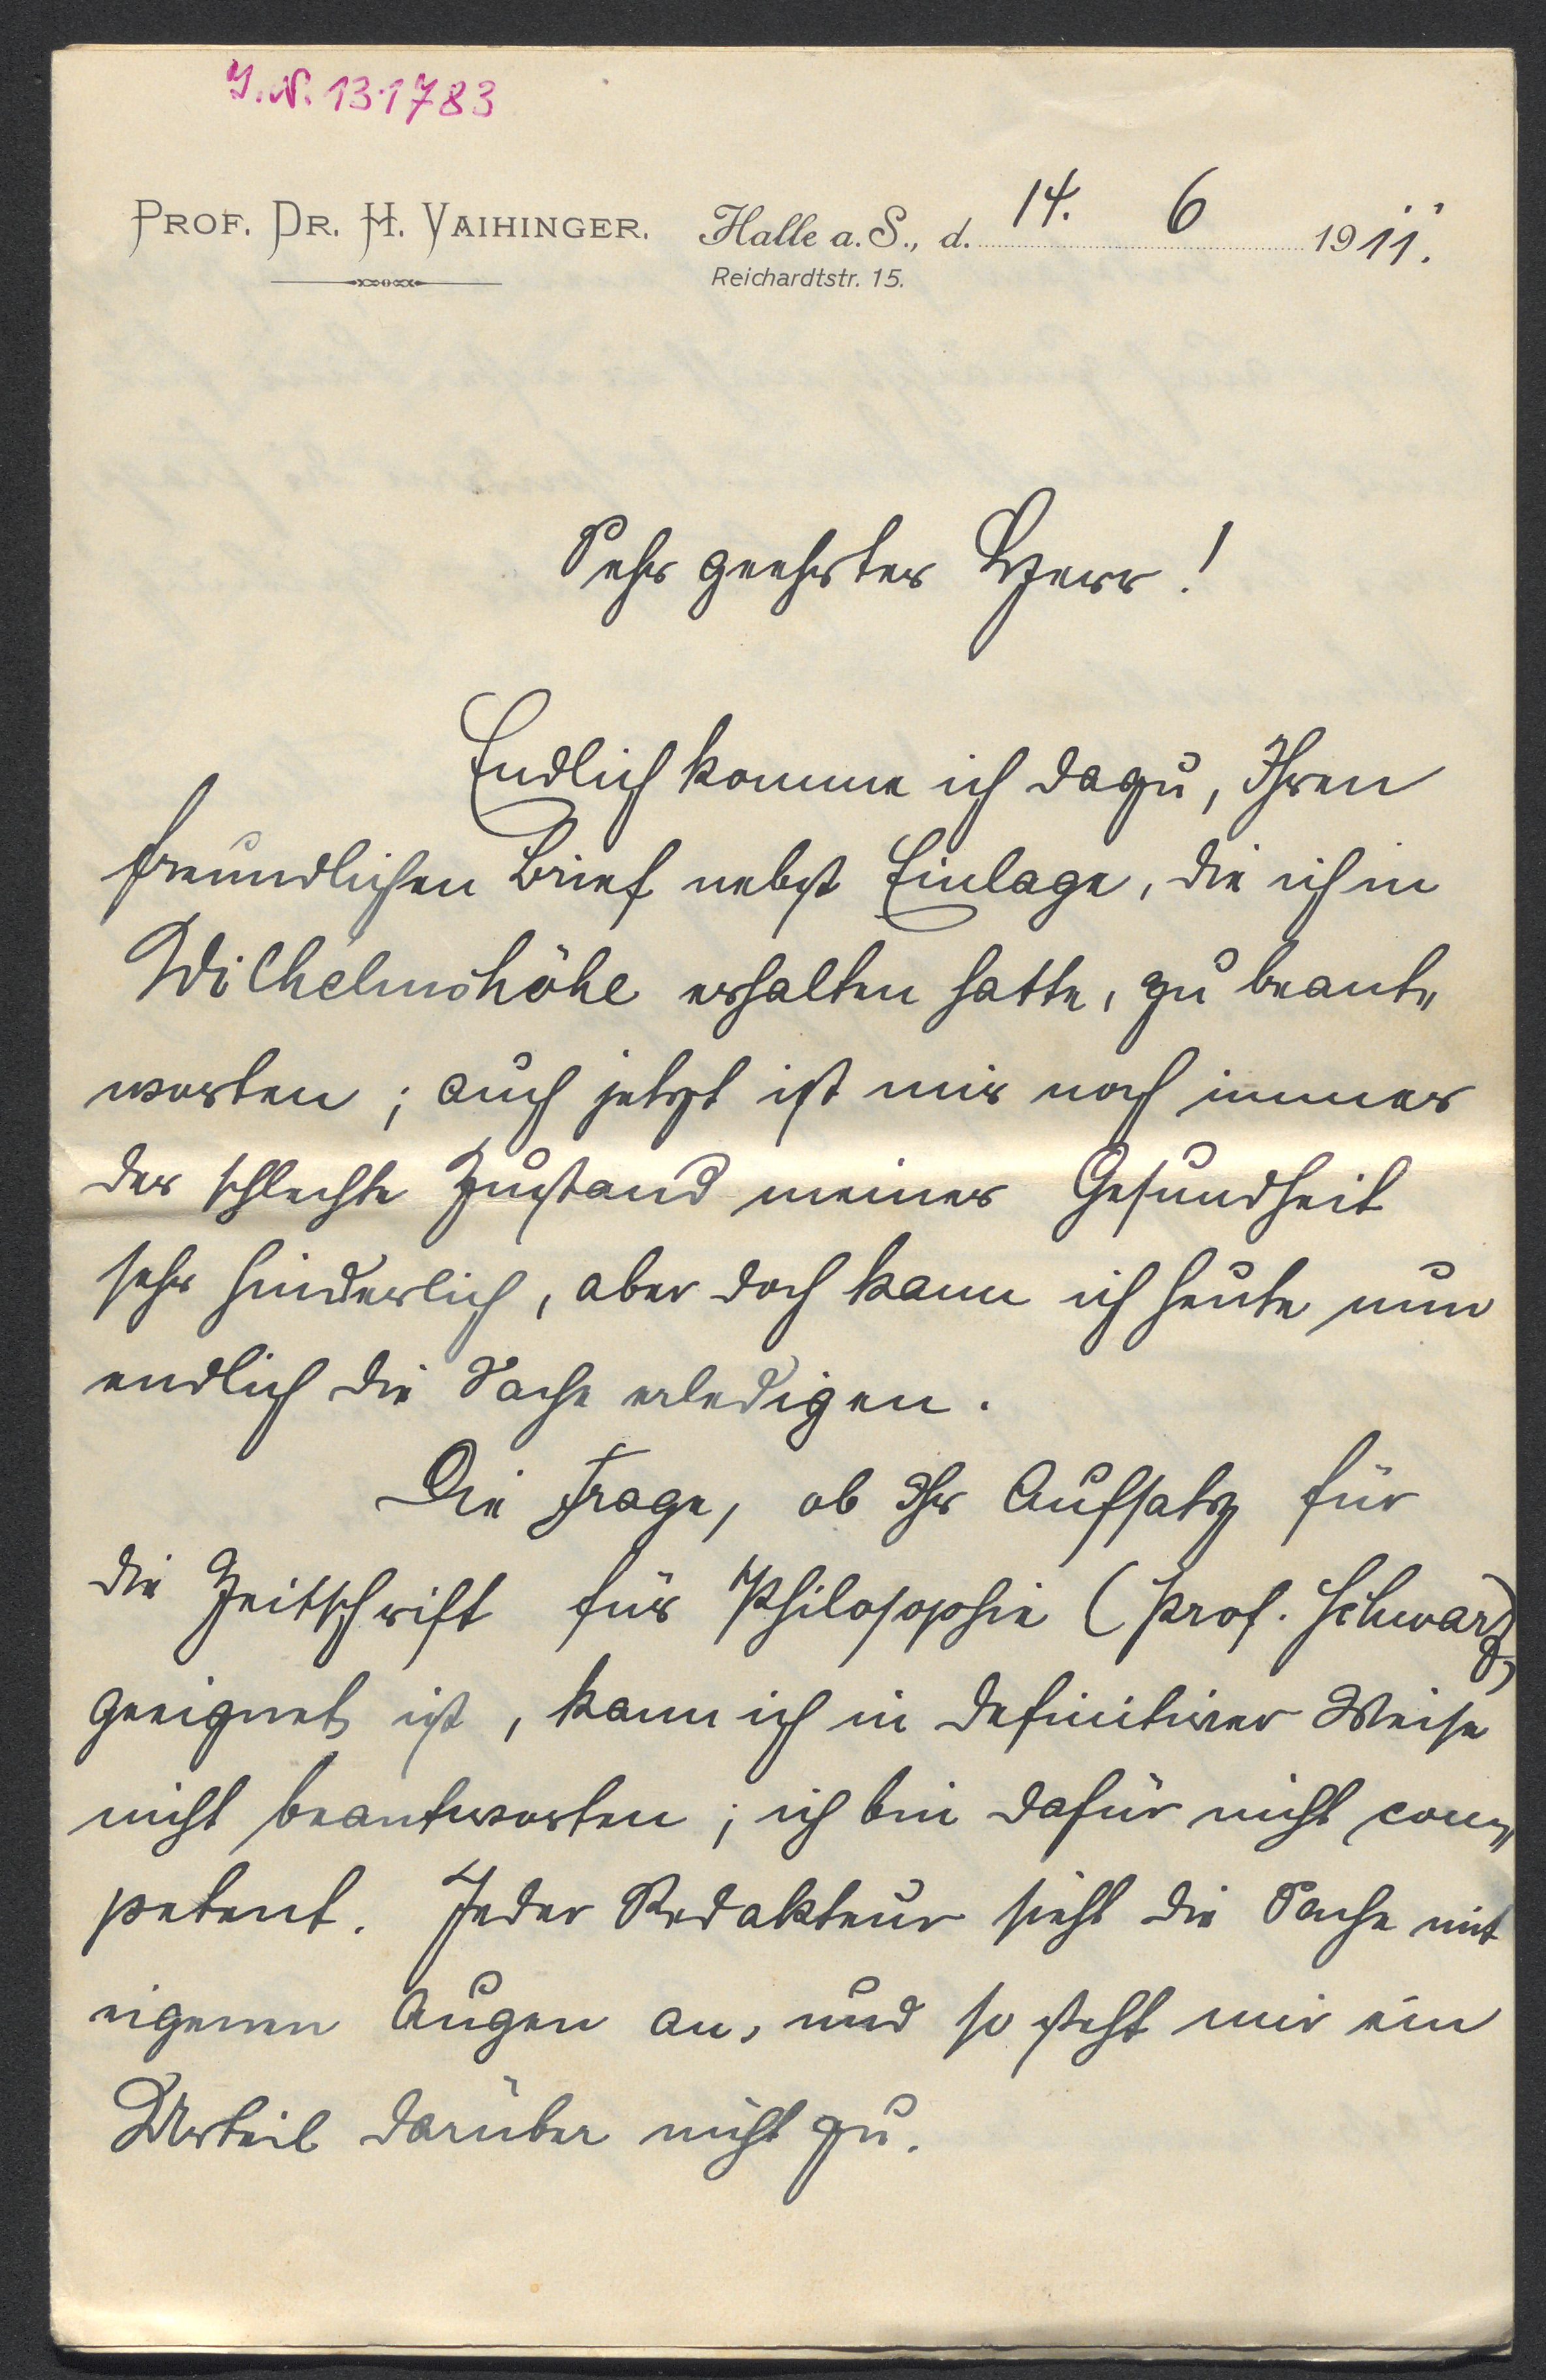 J.N. 131783
PROF. DR. H. VAIHINGER. Halle a. S., d. 14. 6 1911.
Reichardtstr. 15.
Sehr geehrter Herr!
Endlich komme ich dazu, Ihren
freundlichen Brief nebst Einlage, die ich in
Wilhelmshöhe erhalten hatte, zu beant„
worten; auch jetzt ist mir noch immer
der schlechte Zustand meiner Gesundheit
sehr hinderlich, aber doch kann ich heute nun
endlich die Sache erledigen.
Die Frage, ob Ihr Aufsatz für
die Zeitschrift für Philosophie (Prof. Schwarz)
geeignet ist, kann ich in definitiver Weise
nicht beantworten; ich bin dafür nicht com„
petent. Jeder Redakteur sieht die Sache mit
eigenen Augen an, und so steht mir ein
Urteil darüber nicht zu.